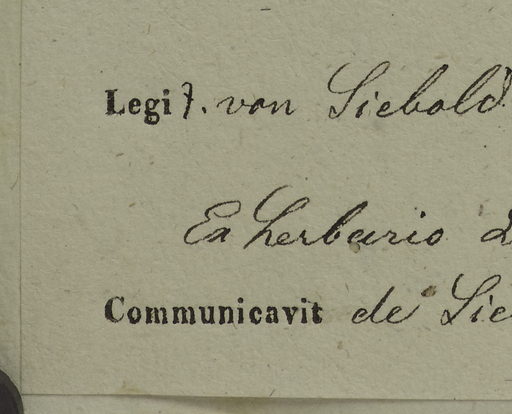 Legit. von Siebold
Ex herbario
Communicavit de Sie